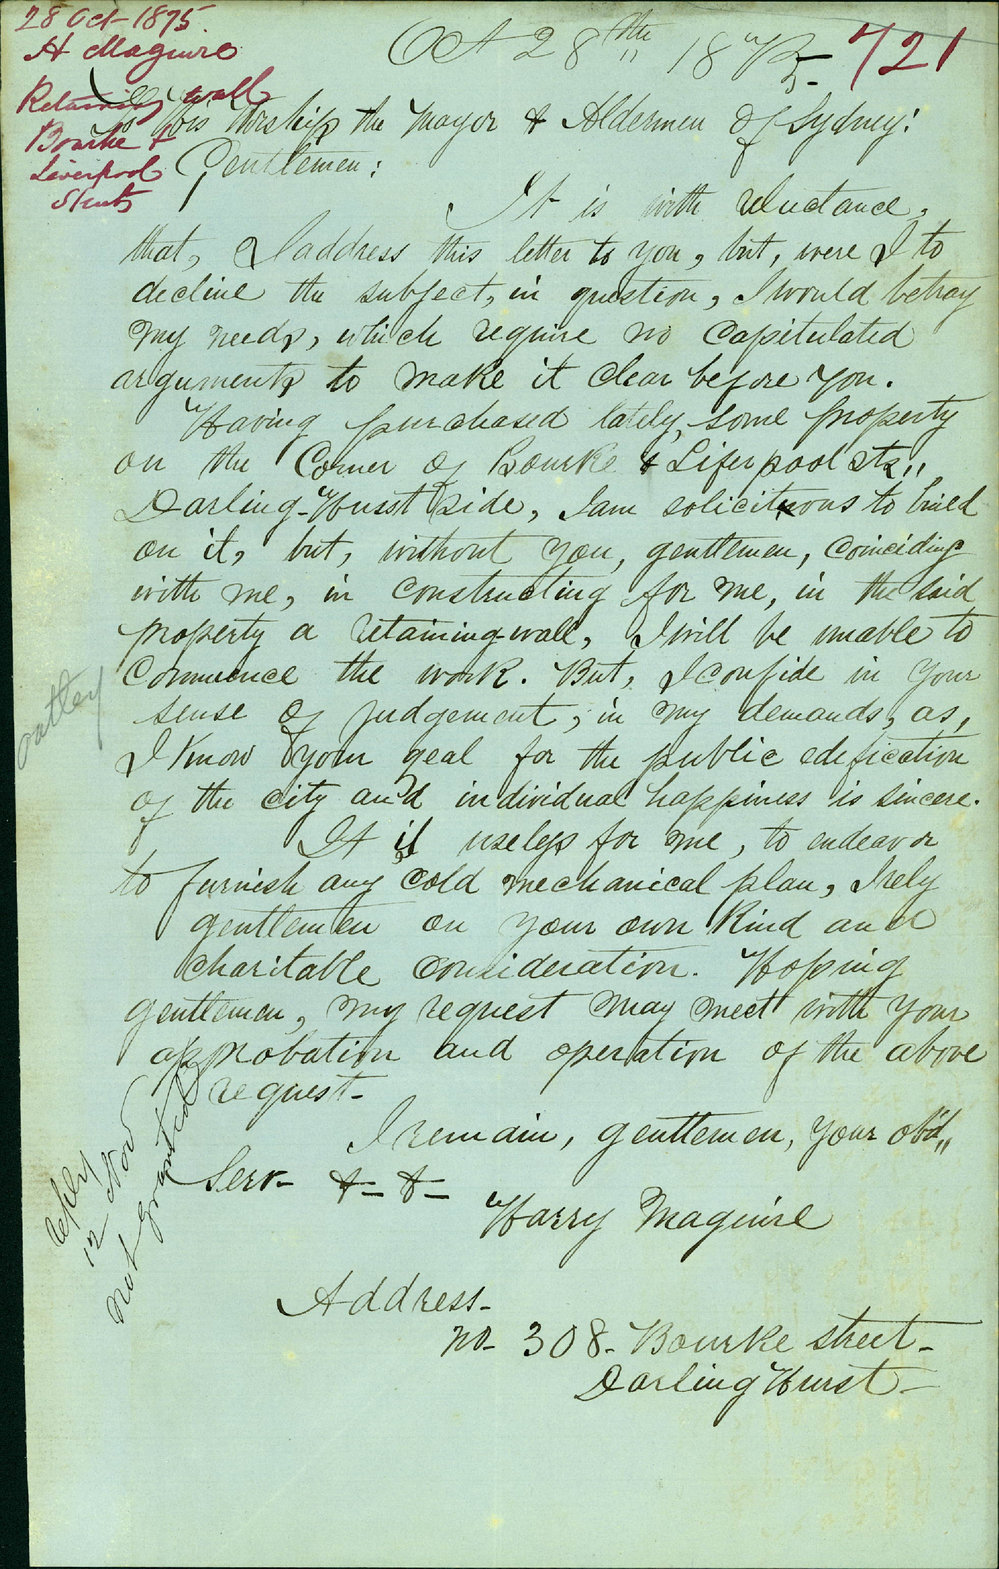 28 Oct 1875.
H Maguire
Retaining wall
Bourke &
Liverpool
Streets
Oct 28th 1875
721
To his Worship the Mayor & Aldermen of Sydney:
Gentlemen:
It is with reluctance,
that, I address this letter to you, but, were I to
decline the subject, in question, I would betray
my needs, which require no capitulated
arguments to make it clear before you.
Having purchased lately, some property
on the Corner of Bourke & Liferpool sts,,
Darling-Husst side, I am solicituous to build
on it, but, without you, gentlemen, coinciding
with me, in constructing for me, in the said
property a retaining-wall, I will be unable to
commence the work. But, I confide in your
sense of judgement, in my demands, as,
I know your zeal for the public edification
of the city and individual happiness is sincere.
It is useless for me, to endeavor
to furnish any cold mechanical plan, I rely
gentlemen on your own kind and
charitable consideration. Hopping
gentlemen, my request may meet with your
approbation and operation of the above
request-
I remain, gentlemen, your ob'd,,
Serv- &- &-
Harry Maguire
Address-
no- 308- Bourke street-
Darling Hurst-
oatley
Reply
12 Nov
not granted